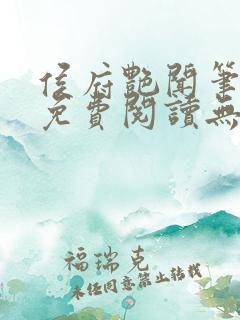 侯府艷聞筆
免費閱讀無
福瑞克
未经同意禁止转载